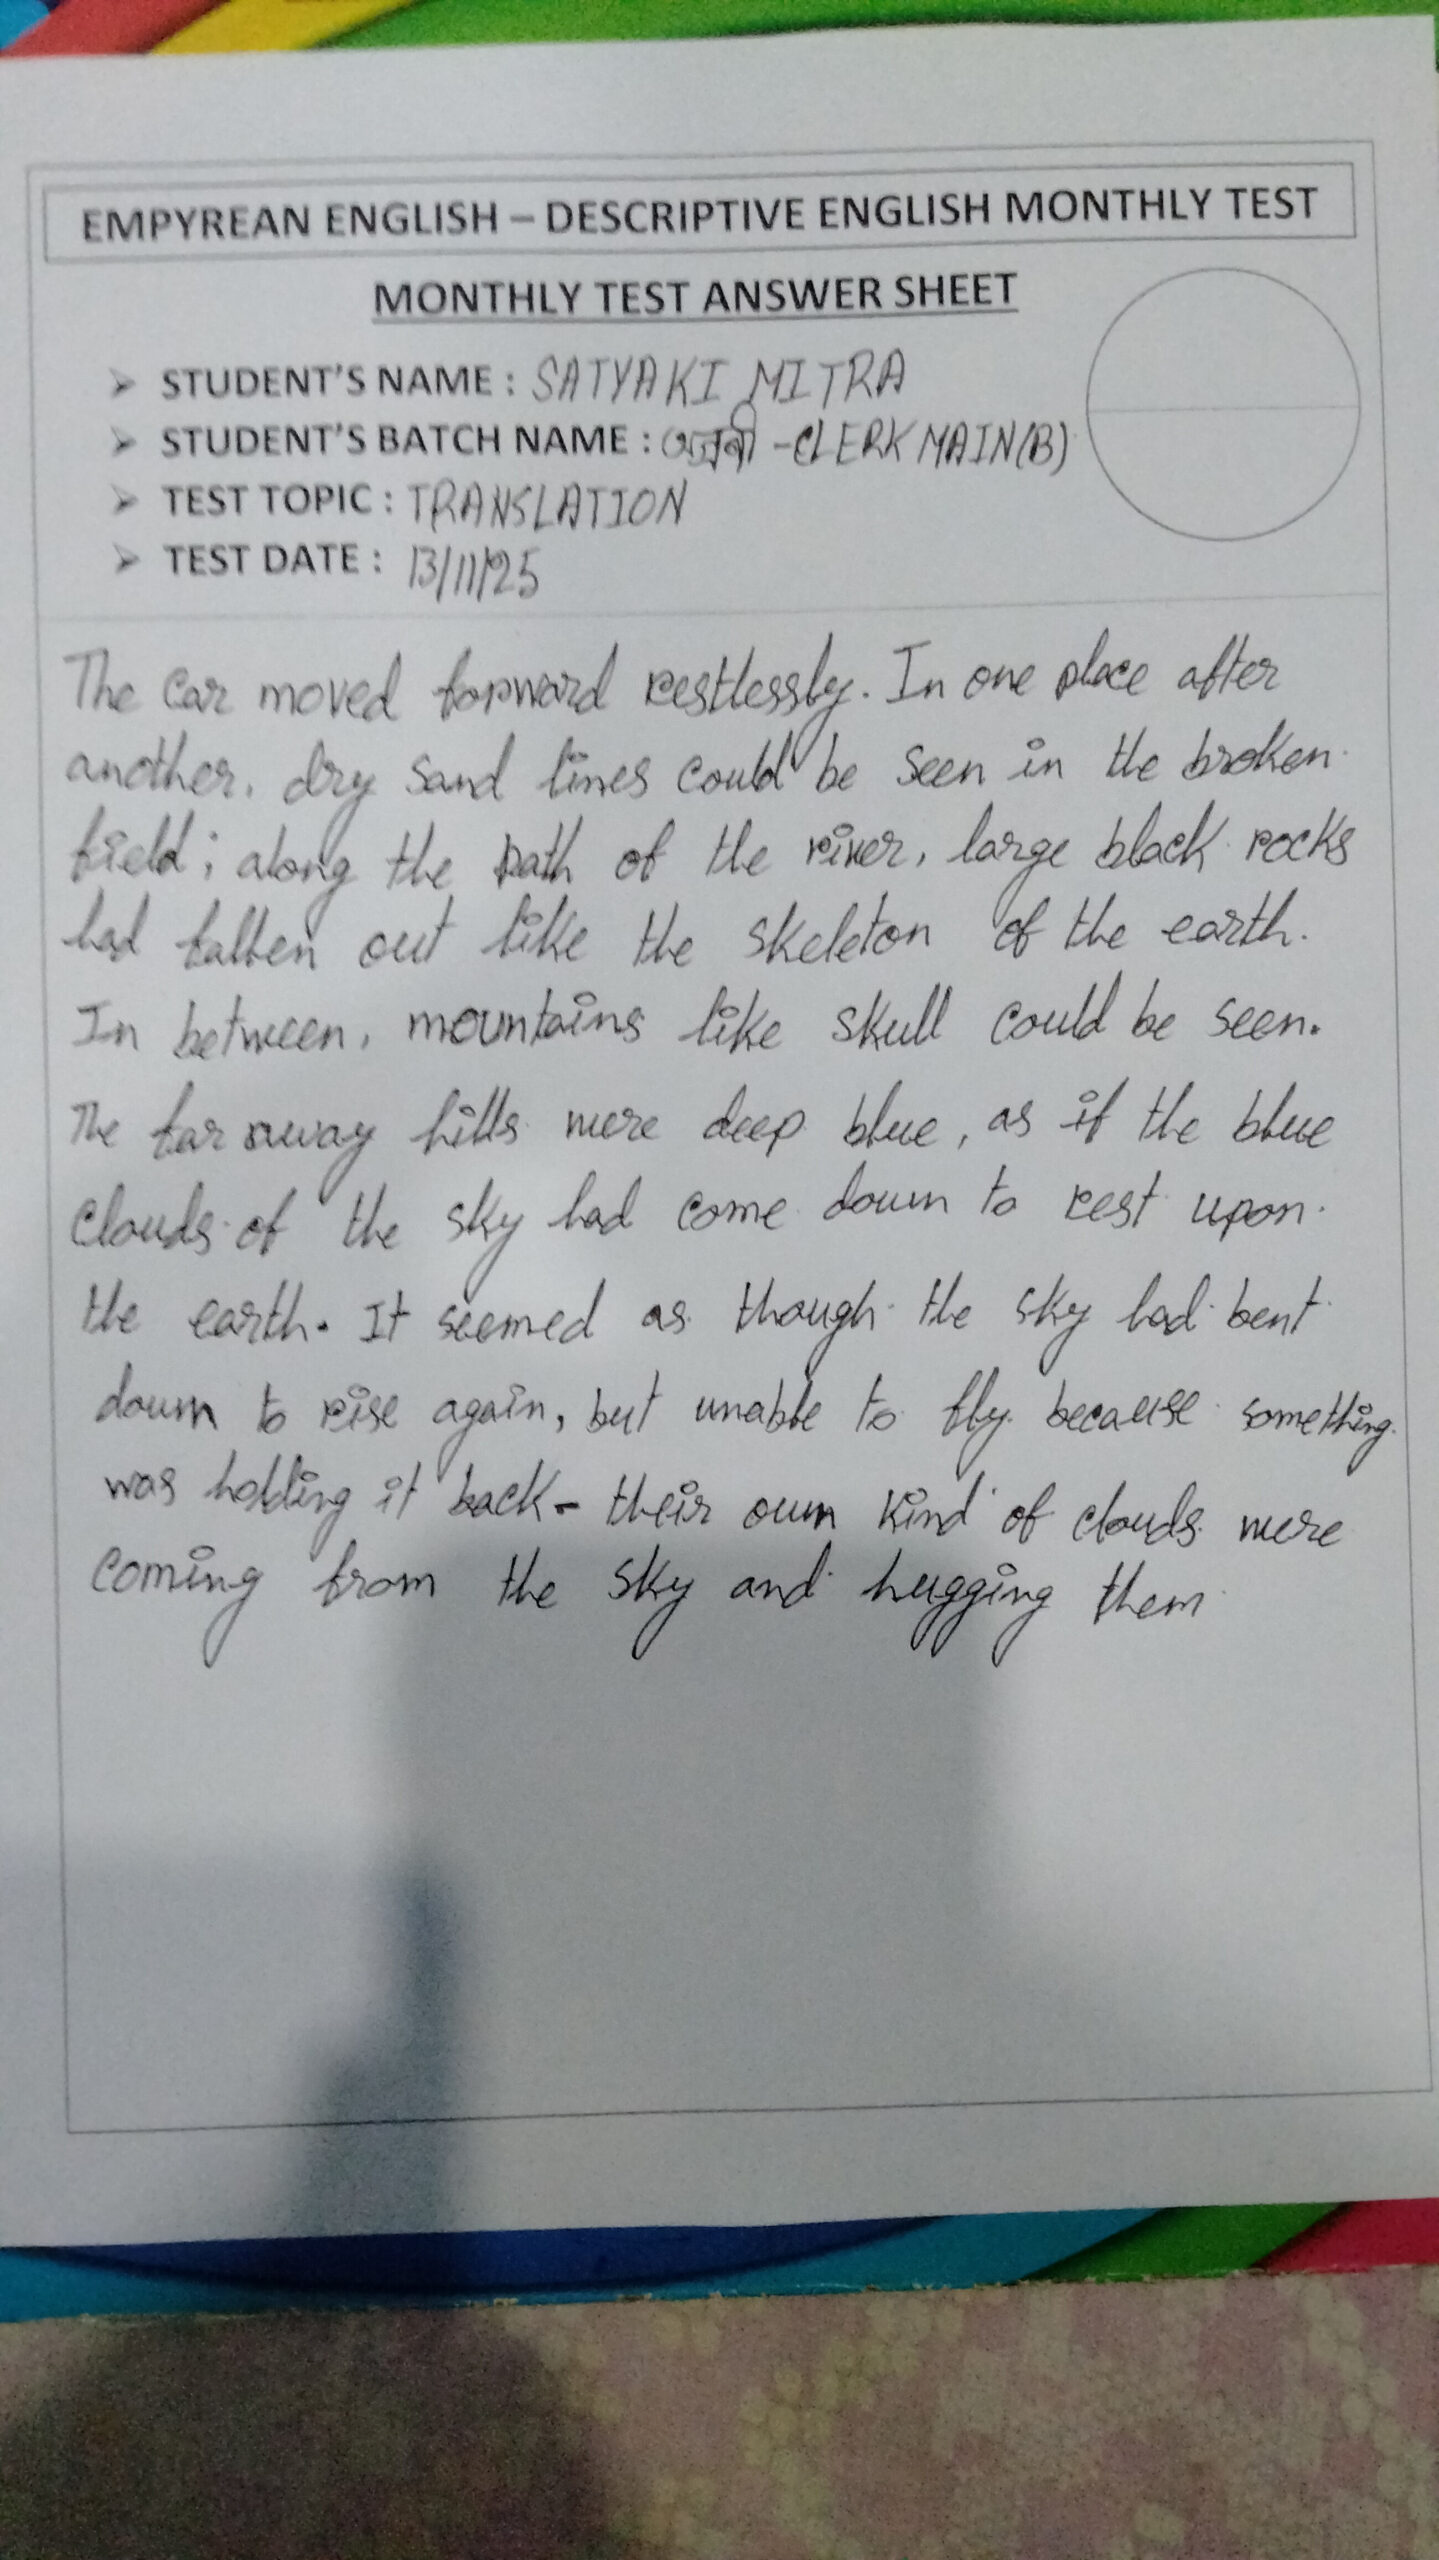 EMPYREAN ENGLISH – DESCRIPTIVE ENGLISH MONTHLY TEST
MONTHLY TEST ANSWER SHEET
➢ STUDENT'S NAME : SATYAKI MITRA
➢ STUDENT'S BATCH NAME : -CLERK MAIN(B)
➢ TEST TOPIC : TRANSLATION
➢ TEST DATE : 13/11/25
The car moved forward restlessly. In one place after
another, dry sand lines could be seen in the broken
field; along the path of the river, large black rocks
had fallen out like the skeleton of the earth.
In between, mountains like skull could be seen.
The far away hills were deep blue, as if the blue
clouds of the sky had come down to rest upon
the earth. It seemed as though the sky had bent
down to rise again, but unable to fly because something
was holding it back- their own kind of clouds were
coming from the sky and hugging them